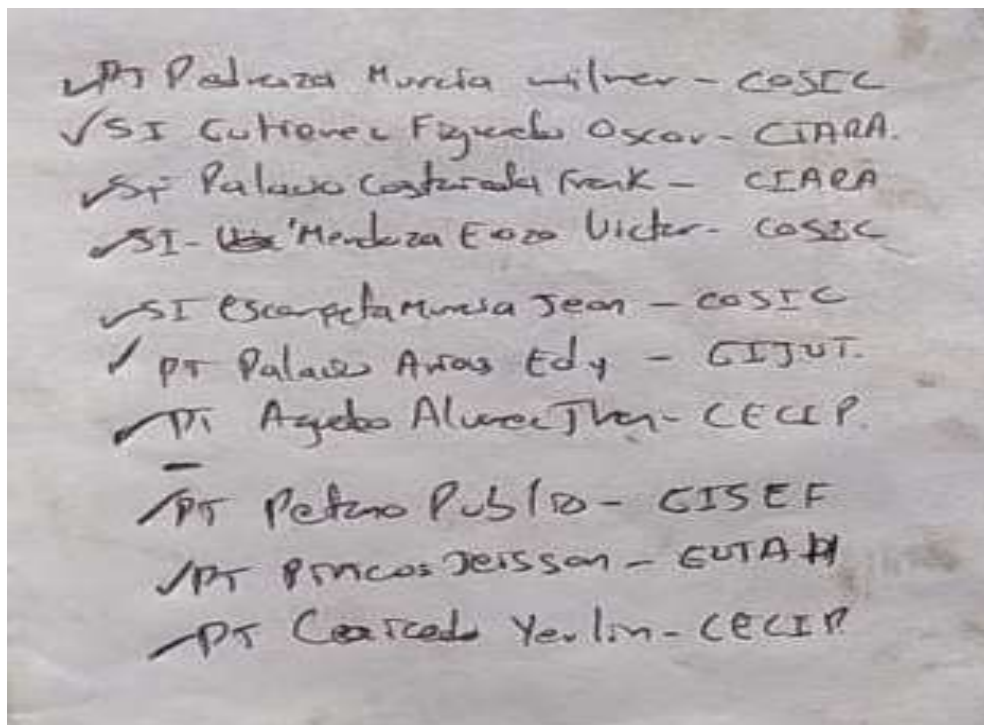 PT Pedraza Murcia wilmer - COSEC
SI Gutierrez Figueredo Oscar - CIARA.
SI Palacio Castañeda Frank - CIARA
SI - Mendoza Erazo Victor - COSEC
SI Escarpeta Murcia Jean - COSEC
PT Palacio Arias Edy - GIJUT.
PT Agudelo Alvarez Jhon - CECIP.
PT Petano Publio - GISEF
PT Pincos Jeisson - GUTAH
PT Caicedo Yerlin - CECIP.